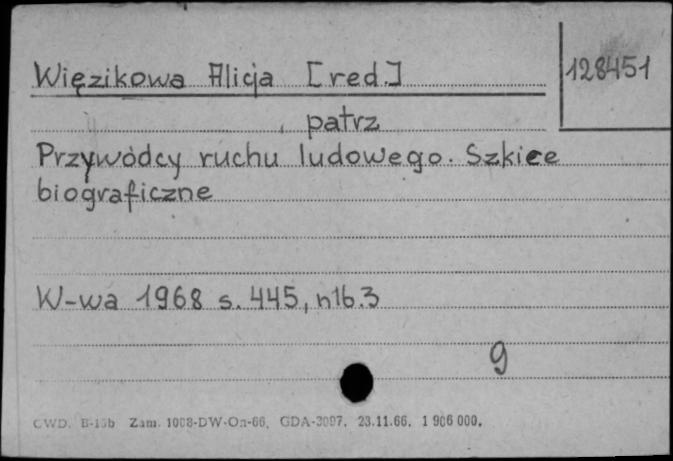 Więzikowa Alicja [red.]
128451
patrz
Przywódcy ruchu ludowego. Szkice
biograficzne
W-wa 1968 s. 445, nlb. 3
9
CWD. B-15b Zam. 1008-DW-Oп-66, GDA-3097, 23.11.66. 1 906 000.